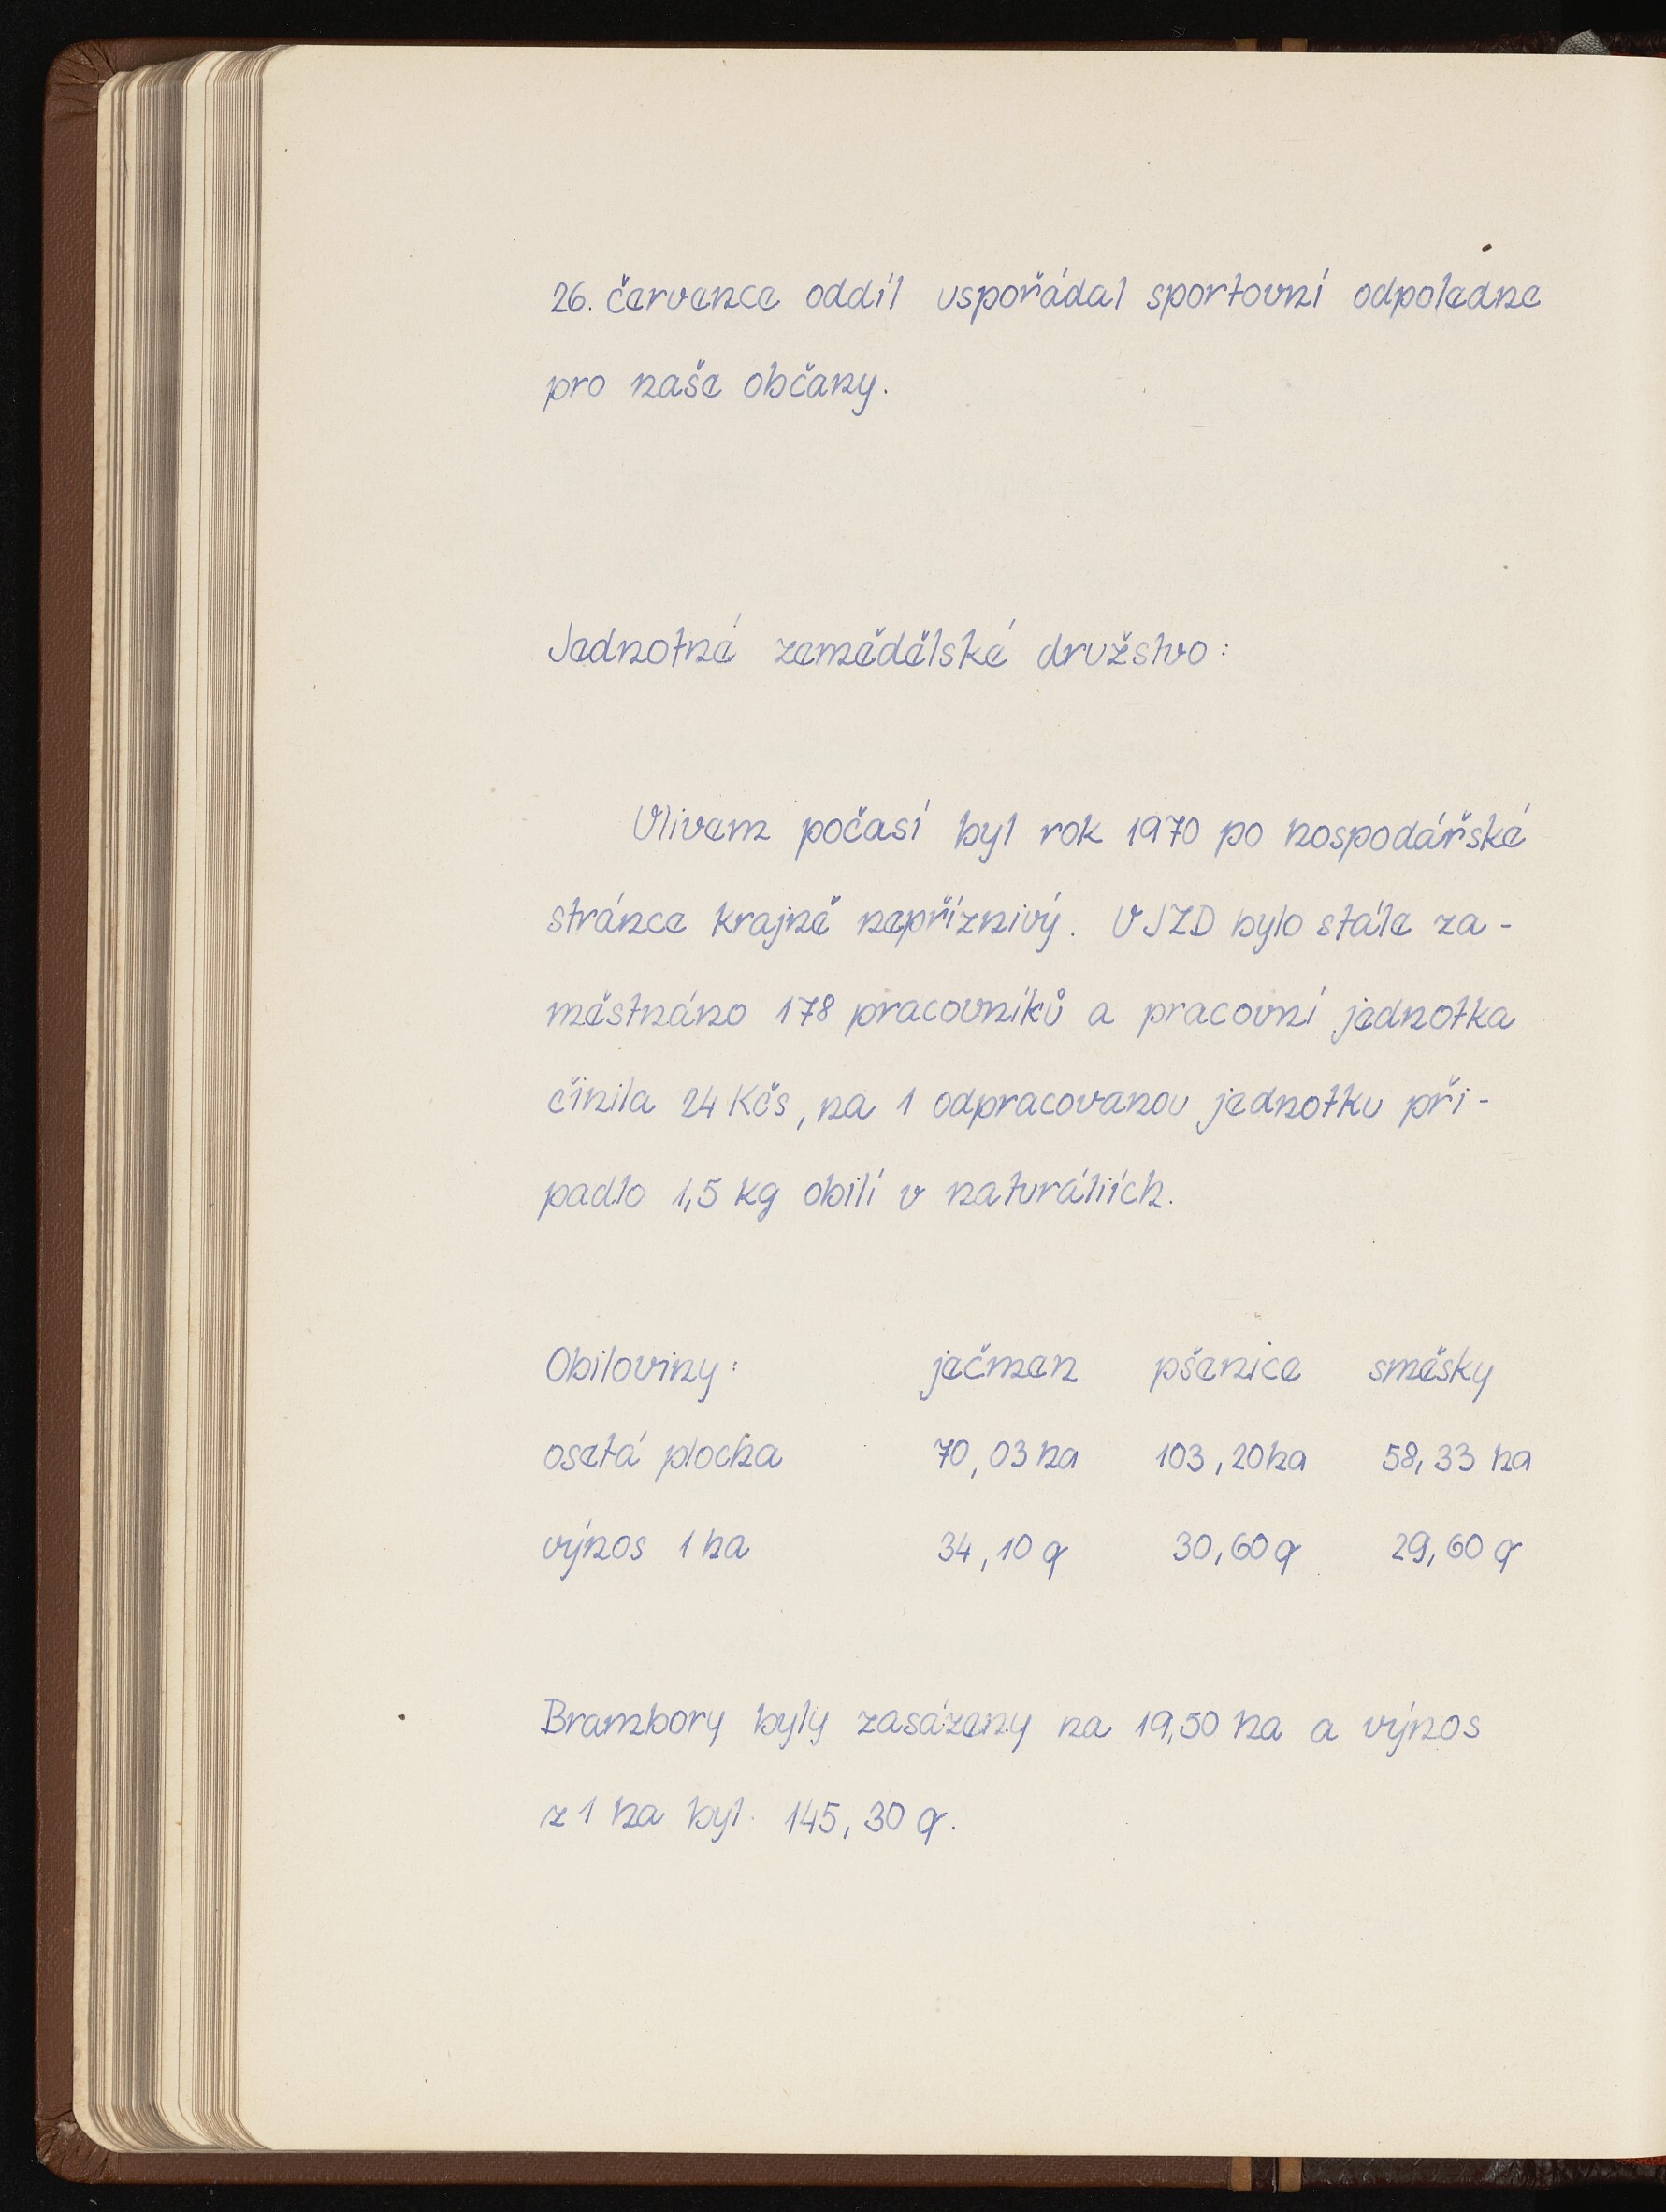 26. července oddíl uspořádal sportovní odpoledne
pro naše občany.
Jednotné zemědělské družstvo:
Vlivem počasí byl rok 1970 po hospodářské
stránce krajně nepříznivý. V JZD bylo stále za-
městnáno 178 pracovníků a pracovní jednotka
činila 24 Kčs, na 1 odpracovanou jednotku při-
padlo 1,5 kg obilí v naturáliích.
Obiloviny: ječmen pšenice směsky
osetá plocha 70,03 ha 103,20 ha 58,33 ha
výnos 1 ha 34,10 q 30,60 q 29,60 q
Brambory byly zasázeny na 19,50 ha a výnos
z 1 ha byl 145,30 q.